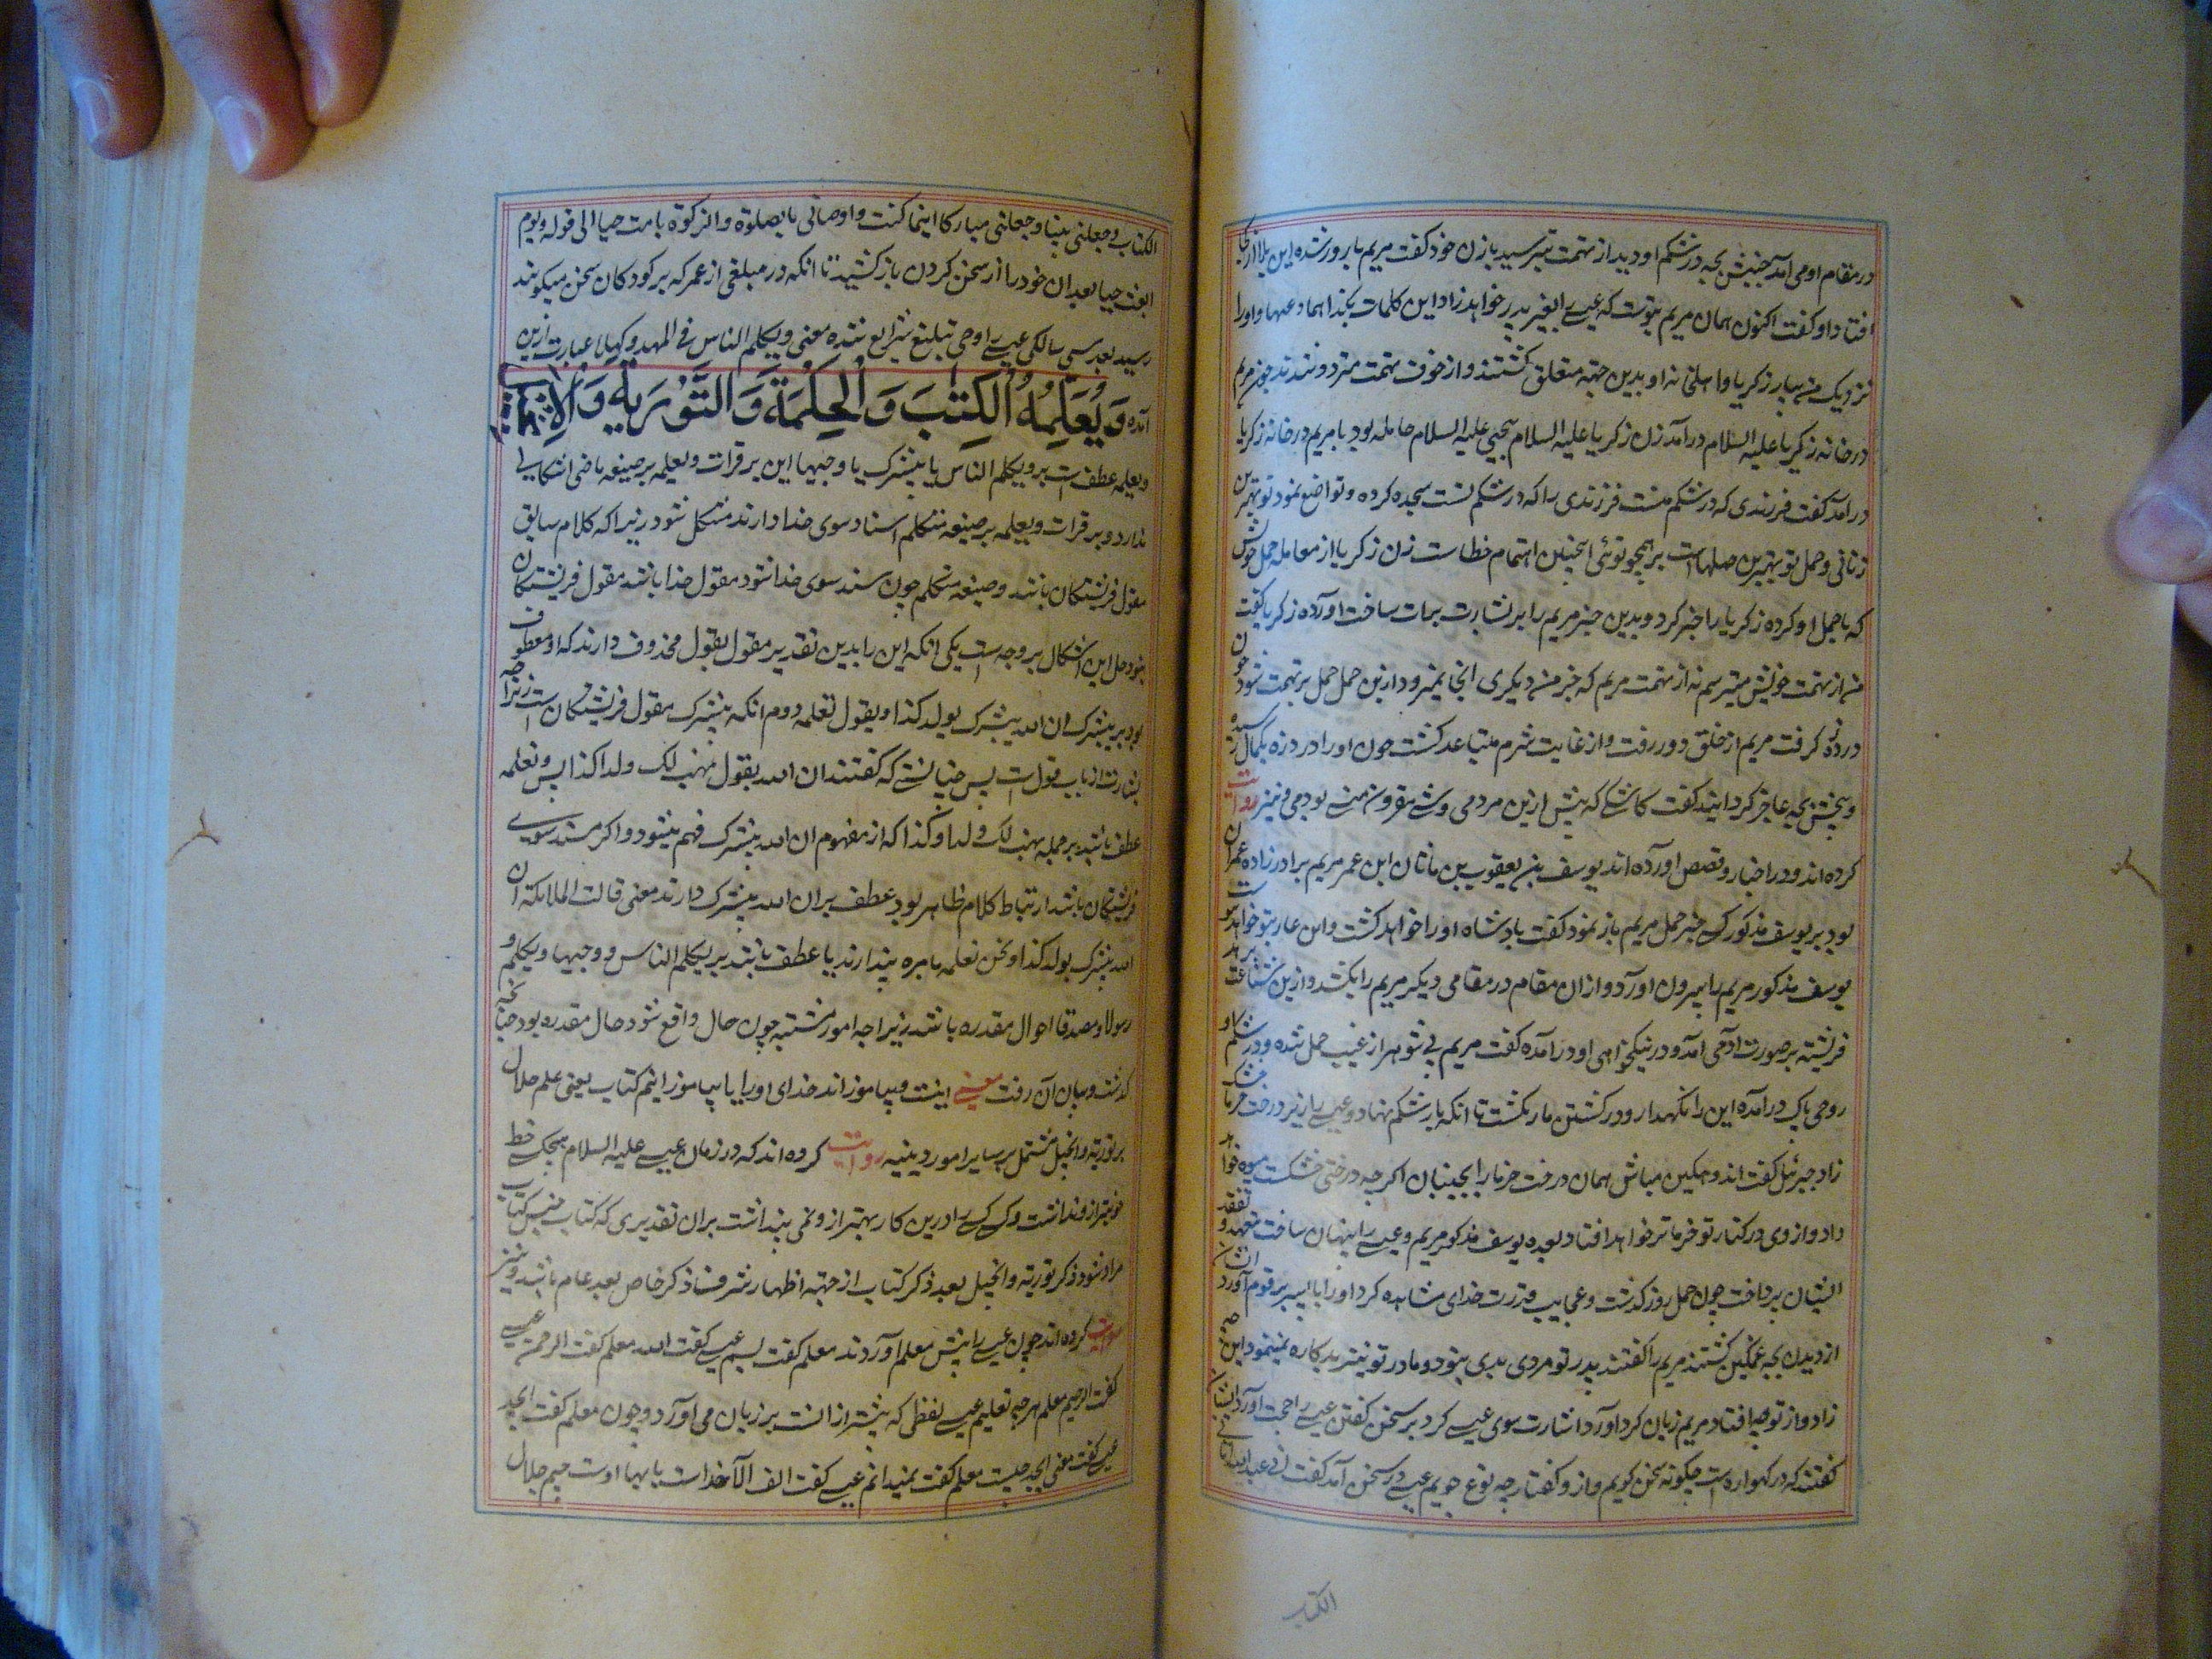 در مقام او می آمد جنبش بچه در شکم او دید از تهمت بترسید با زن خود گفت مریم بارور شده این بلا از کجا
افتاد او گفت اکنون همان مریم بتوست که عیسی را بغیر پدر خواهد زاد این کلمات بگذا
نزدیک من بیار زکریا و اهل خانه او بدین جهته متعلق گشتند و از خوف تهمت متردد شدند چون مریم
در خانه زکریا علیه السلام درآمد زن زکریا علیه السلام بیحیی علیه السلام حامله بود با مریم در خانه زکریا
درآمد گفت فرزندی که در شکم منست فرزندی را که در شکم تست سجده کرده و تواضع نمود تو بهترین
زنانی و حمل تو بهترین حملهاست بر همچو توئی اینچنین اتهام خطاست زن زکریا از معامله حمل خویش
که با حمل او کرده زکریا را خبر کرد و بدین خبر مریم را بر بشارت برات ساخت آورده زکریا گفت
من از تهمت خویش میترسم نه از تهمت مریم که جز من دیگری آنجا نمیرود ازین حمل حمل بر تهمت شود چون
درد زه گرفت مریم از خلق دور رفت و از غایت شرم متباعد گشت چون او را درد زه بکمال رسیده
و بجنبش بچه عاجز گردانید گفت کاشکی که پیش ازین مردمی و نیز روایت
کرده اند و در اخبار و قصص آورده اند یوسف بن یعقوب بن ماثان ابن عم مریم برادرزاده عمران
بود بر یوسف مذکور خبر حمل مریم باز نمود گفت بادشاه او را خواهد کشت و این عار بتو خواهد
یوسف مذکور مریم را بیرون آورد و از ان مقام در مقامی دیگر مریم را بکشد و ازین شناعت برهد
فرشته بر صورت آدمی آمد و در نیکخواهی او درآمده گفت مریم بی شوهر از غیب حمل شده و در شکم او
روحی پاک درآمده این را نگهدار و در کشتن ما تا انکه بار شکم نهاد و عیسی را زیر درخت خرما خشک
زاد جبرئیل گفت اندوهگین مباش همان درخت خرما را بجنبان اگرچه درختی خشکست میوه خواهد
داد و از وی در کنار تو خرما تر خواهد افتاد بعده یوسف مذکور مریم و عیسی را پنهان ساخت بتعهد و تفقد
ایشان پرداخت چون چهل روز گذشت و عجایب قدرت خدای مشاهده کرد او را با پسر بر قوم آورد ایشان
از دیدن بچه غمگین گشتند مریم را گفتند پدر تو مردی بدی نبود و مادر تو نیز بدکاره نمینمود این بچه
زاد و از تو چه افتاد مریم زبان گرد آورد اشارت سوی عیسی کرد بر سخن گفتن عیسی را حجت آورد ایشان
گفتند که در گهواره است چگونه سخن گویم و از و گفتار چه نوع جویم عیسی در سخن آمد گفت انی عبد الله آتانی
الکتاب
الکتاب و جعلنی نبیا و جعلنی مبارکا اینما کنت و اوصانی بالصلوة و الزکوة ما دمت حیا الی قوله و یوم
ابعث حیا بعد ان خود را از سخن کردن باز کشید تا انکه در مبلغی از عمر که بر کودکان سخن میگویند
رسید بعد سی سالگی عیسی را وحی تبلیغ شرایع شده معنی و یکلم الناس فی المهد و کهلا عبارت ازین
آمده وَيُعَلِّمُهُ الْكِتٰبَ وَالْحِكْمَةَ وَالتَّوْرٰيةَ وَالْاِنْجِيْلَ
و یعلمه عطف است بر و یکلم الناس یا یبشرک یا وجیها این بر قرات و یعلمه بر صیغه ماضی اشکالی
ندارد و بر قرات و یعلمه بر صیغه متکلم اسناد سوی خدا دارند مشکل شود زیرا که کلام سابق
مقول فرشتگان باشد و صیغه متکلم چون مسند سوی خدا شود مقول خدا باشد مقول فرشتگان
نبود حل این اشکال بر وجه است یکی انکه این را بدین تقدیر مقول یقول محذوف دارند که او معطوف
بود بر یبشرک ان الله یبشرک بولد کذا و یقول نعلمه دوم انکه یبشرک مقول فرشتگان است زیرا چه
بشارت از باب قول است پس چنانستی که گفتند ان الله یقول نهب لک ولدا کذا پس و نعلمه
عطف باشد بر جمله نهب لک ولدا و کذا که از مفهوم ان الله یبشرک فهم میشود و اگر مسند سوی
فرشتگان باشد ارتباط کلام ظاهر بود عطف بر ان الله یبشرک دارند معنی قالت الملائکة ان
الله یبشرک بولد کذا و نحن نعلمه بامره پندارند یا عطف باشد بر یکلم الناس و وجیها و یکلم و
رسولا و مصدقا احوال مقدره باشد زیرا چه امور مشتبه چون حال واقع شود حال مقدره بود چنانچه
گذشت و بیان آن رفت معنی اینست و بیاموزاند خدای او را یا بیاموزانیم کتاب یعنی علم حلال
بر توریة و انجیل مشتمل بر سایر امور دینیه روایت کرده اند که در زمان عیسی علیه السلام هیچکس خط
خوبتر از و نداشت و کسی را درین کار بهتر از و نمی پنداشت بران تقدیری که کتاب جنس کتاب
مراد شود ذکر توریة و انجیل بعد ذکر کتاب از جهته اظهار شرف ذکر خاص بعد عام باشد و نیز
روایت کرده اند چون عیسی را پیش معلم آوردند معلم گفت بسم عیسی گفت الله معلم گفت الرحمن عیسی
گفت الرحیم معلم هرچه تعلیم عیسی لفظی که پیشتر از انست بر زبان می آورد و چون معلم گفت ابجد
عیسی گفت معنی ابجد چیست معلم گفت نمیدانم عیسی گفت الف آلاء خداست با بهاء اوست جیم جلال